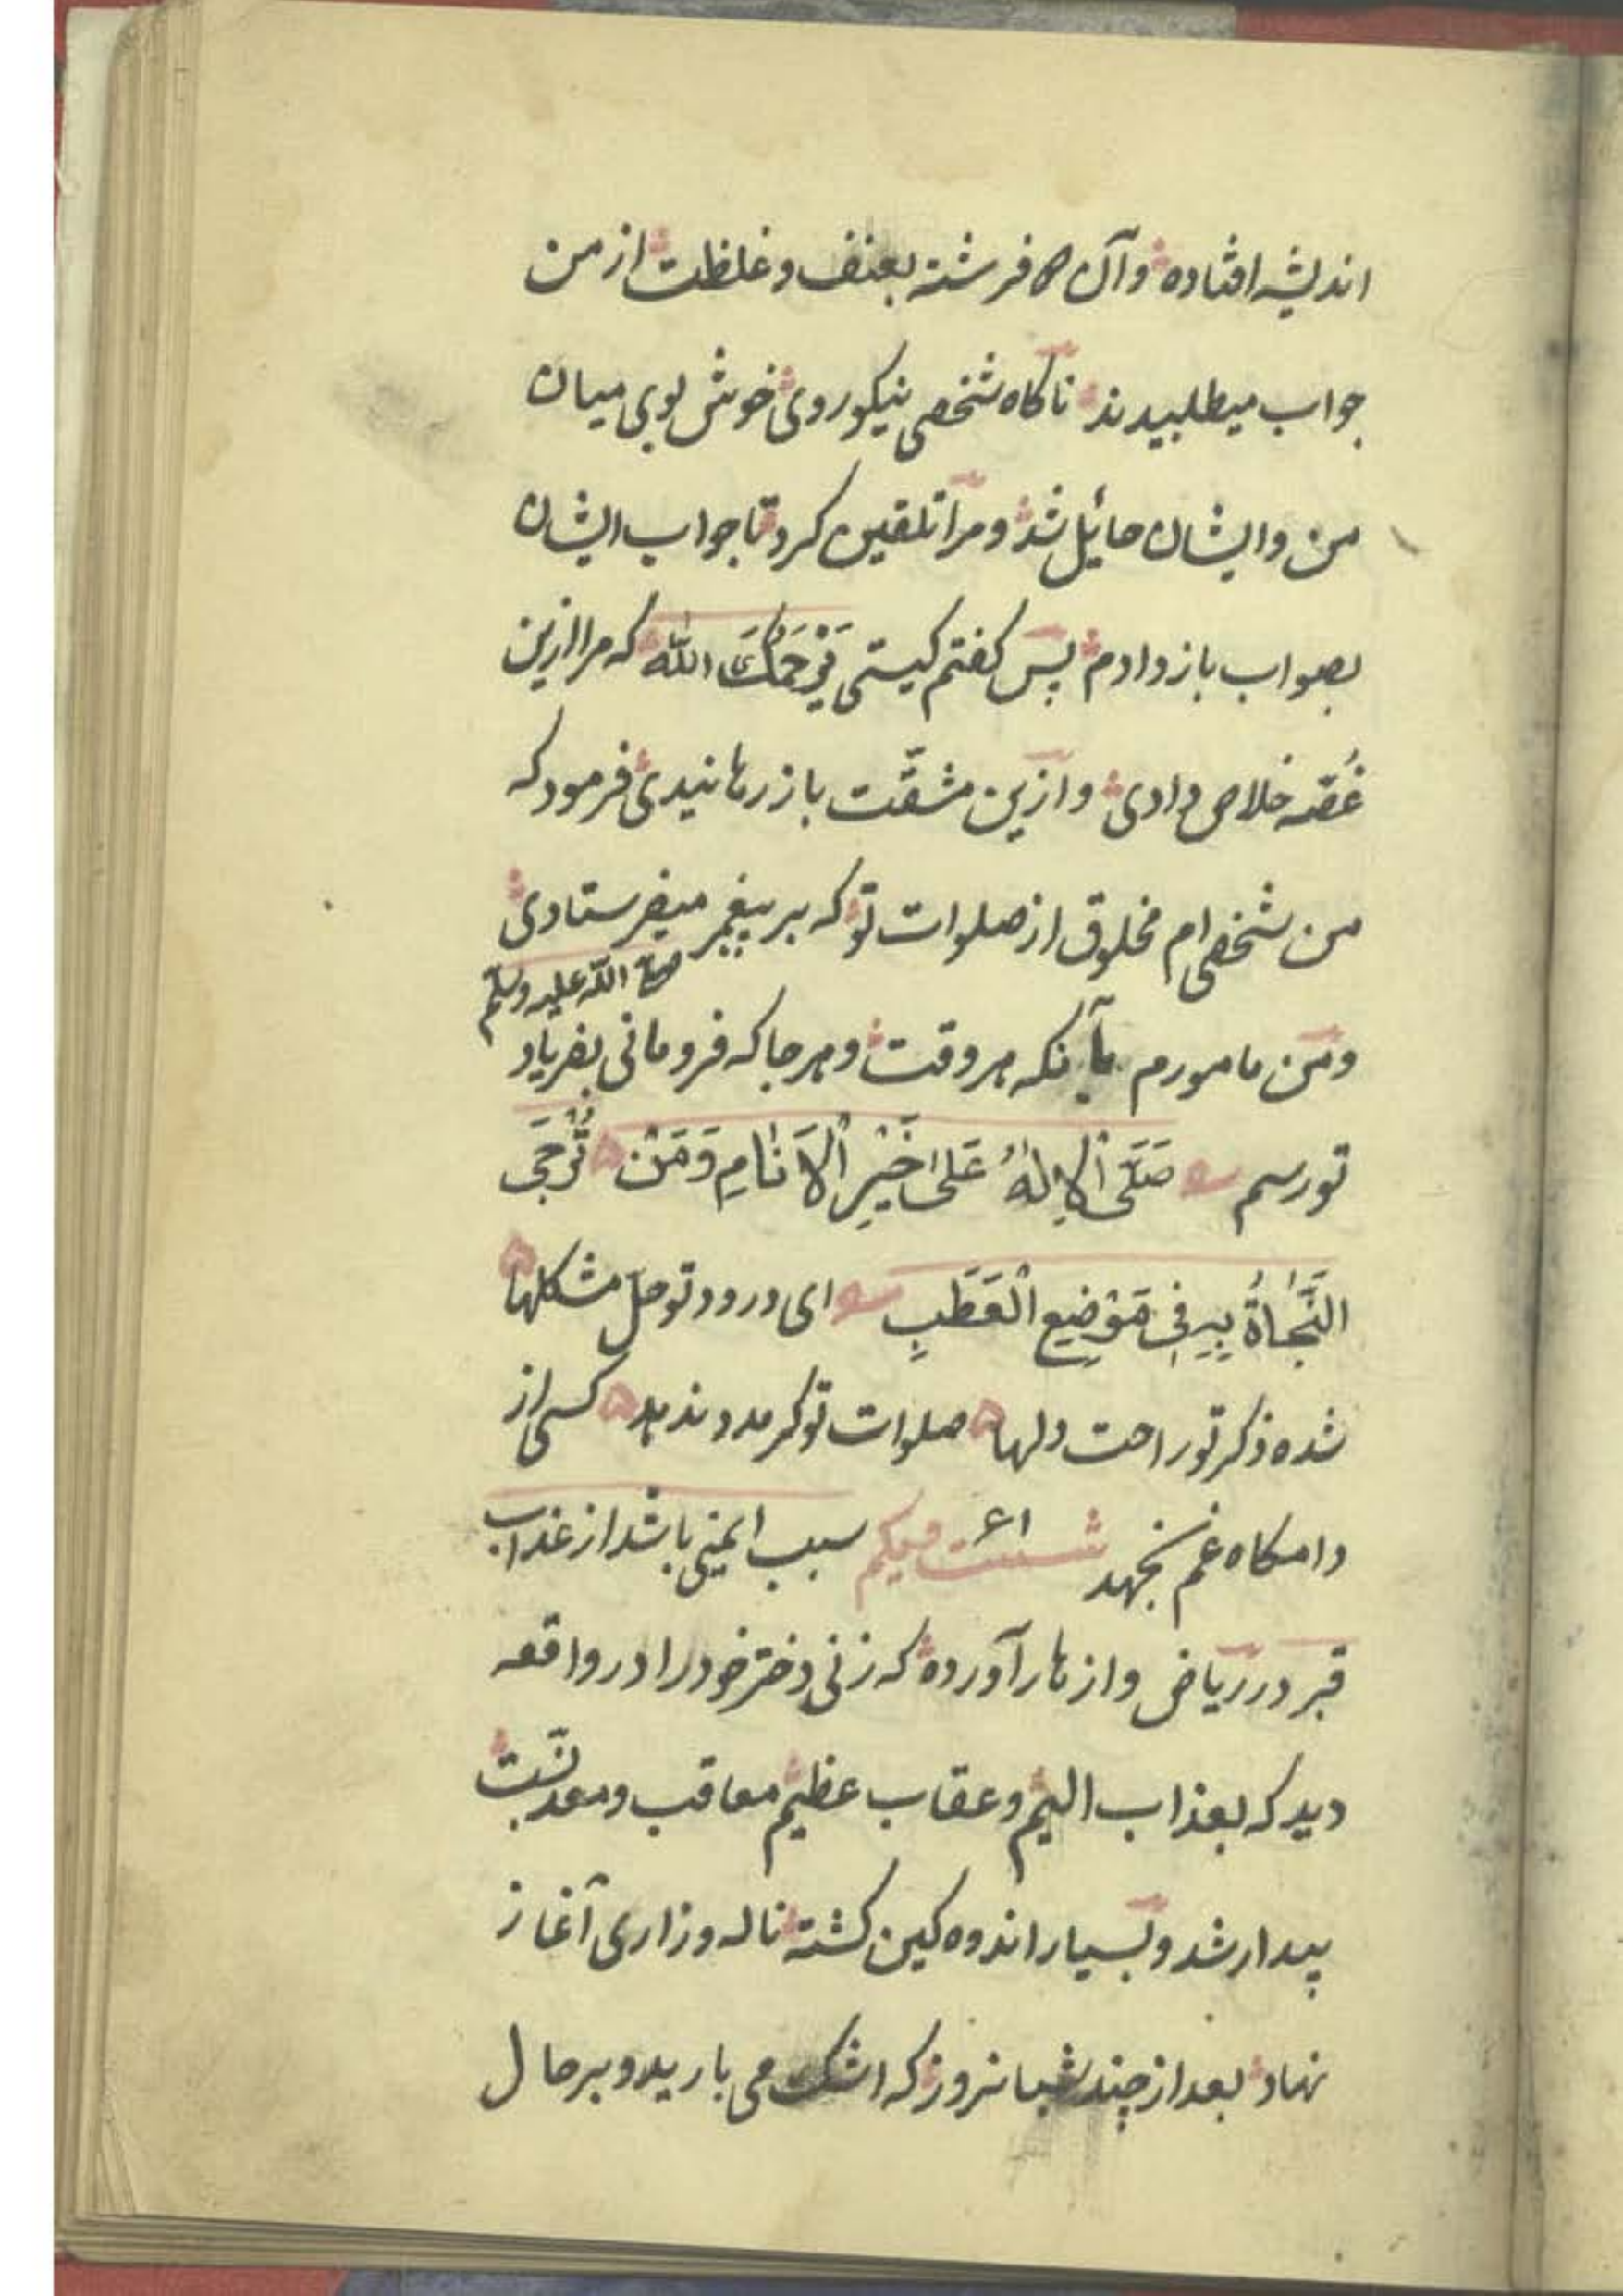 اندیشه افتاده و آن فرشته بعنف و غلظت از من
جواب میطلبیدند ناکاه شخصی نیکوروی خوش بوی میان
من و ایشان حائیل شد و مرا تلقین کرد تا جواب ایشان
بصواب باز دادم پس کفتم کیستی یَرْحَمُکَ الله که مرا ازین
غُصّه خلاص دادی و ازین مشقّت باز رهانیدی فرمود که
من شخصی ام مخلوق از صلوات تو که بر پیغمبر میفرستادی
صلی اللّه علیه وسلّم
و من مامورم بآنکه هر وقت و هر جا که فرو مانی بفریاد
تو رسم صَلَّی الْاِلٰهُ عَلیٰ خَیْرِ الْاَنَامِ وَمَنْ تُرْجَی
النَّجَاةُ بِهِ فِی مَوْضِعِ الْعَطَبِ ای درود تو حل مشکلها
شده ذکر تو راحت دلها صلوات تو کر مدد ندهد کسی از
دامکاه غم نجهد ۶۱ شست ویکم سبب ایمنی باشد از عذاب
قبر در ریاض و ازهار آورده که زنی دختر خود را در واقعه
دید که بعذاب الیم و عقاب عظیم معاقب و معذّبست
بیدار شد و بسیار اندوه کین کشته ناله و زاری آغاز
نهاد بعد از چند شبانروز که اشک می بارید و بر حال